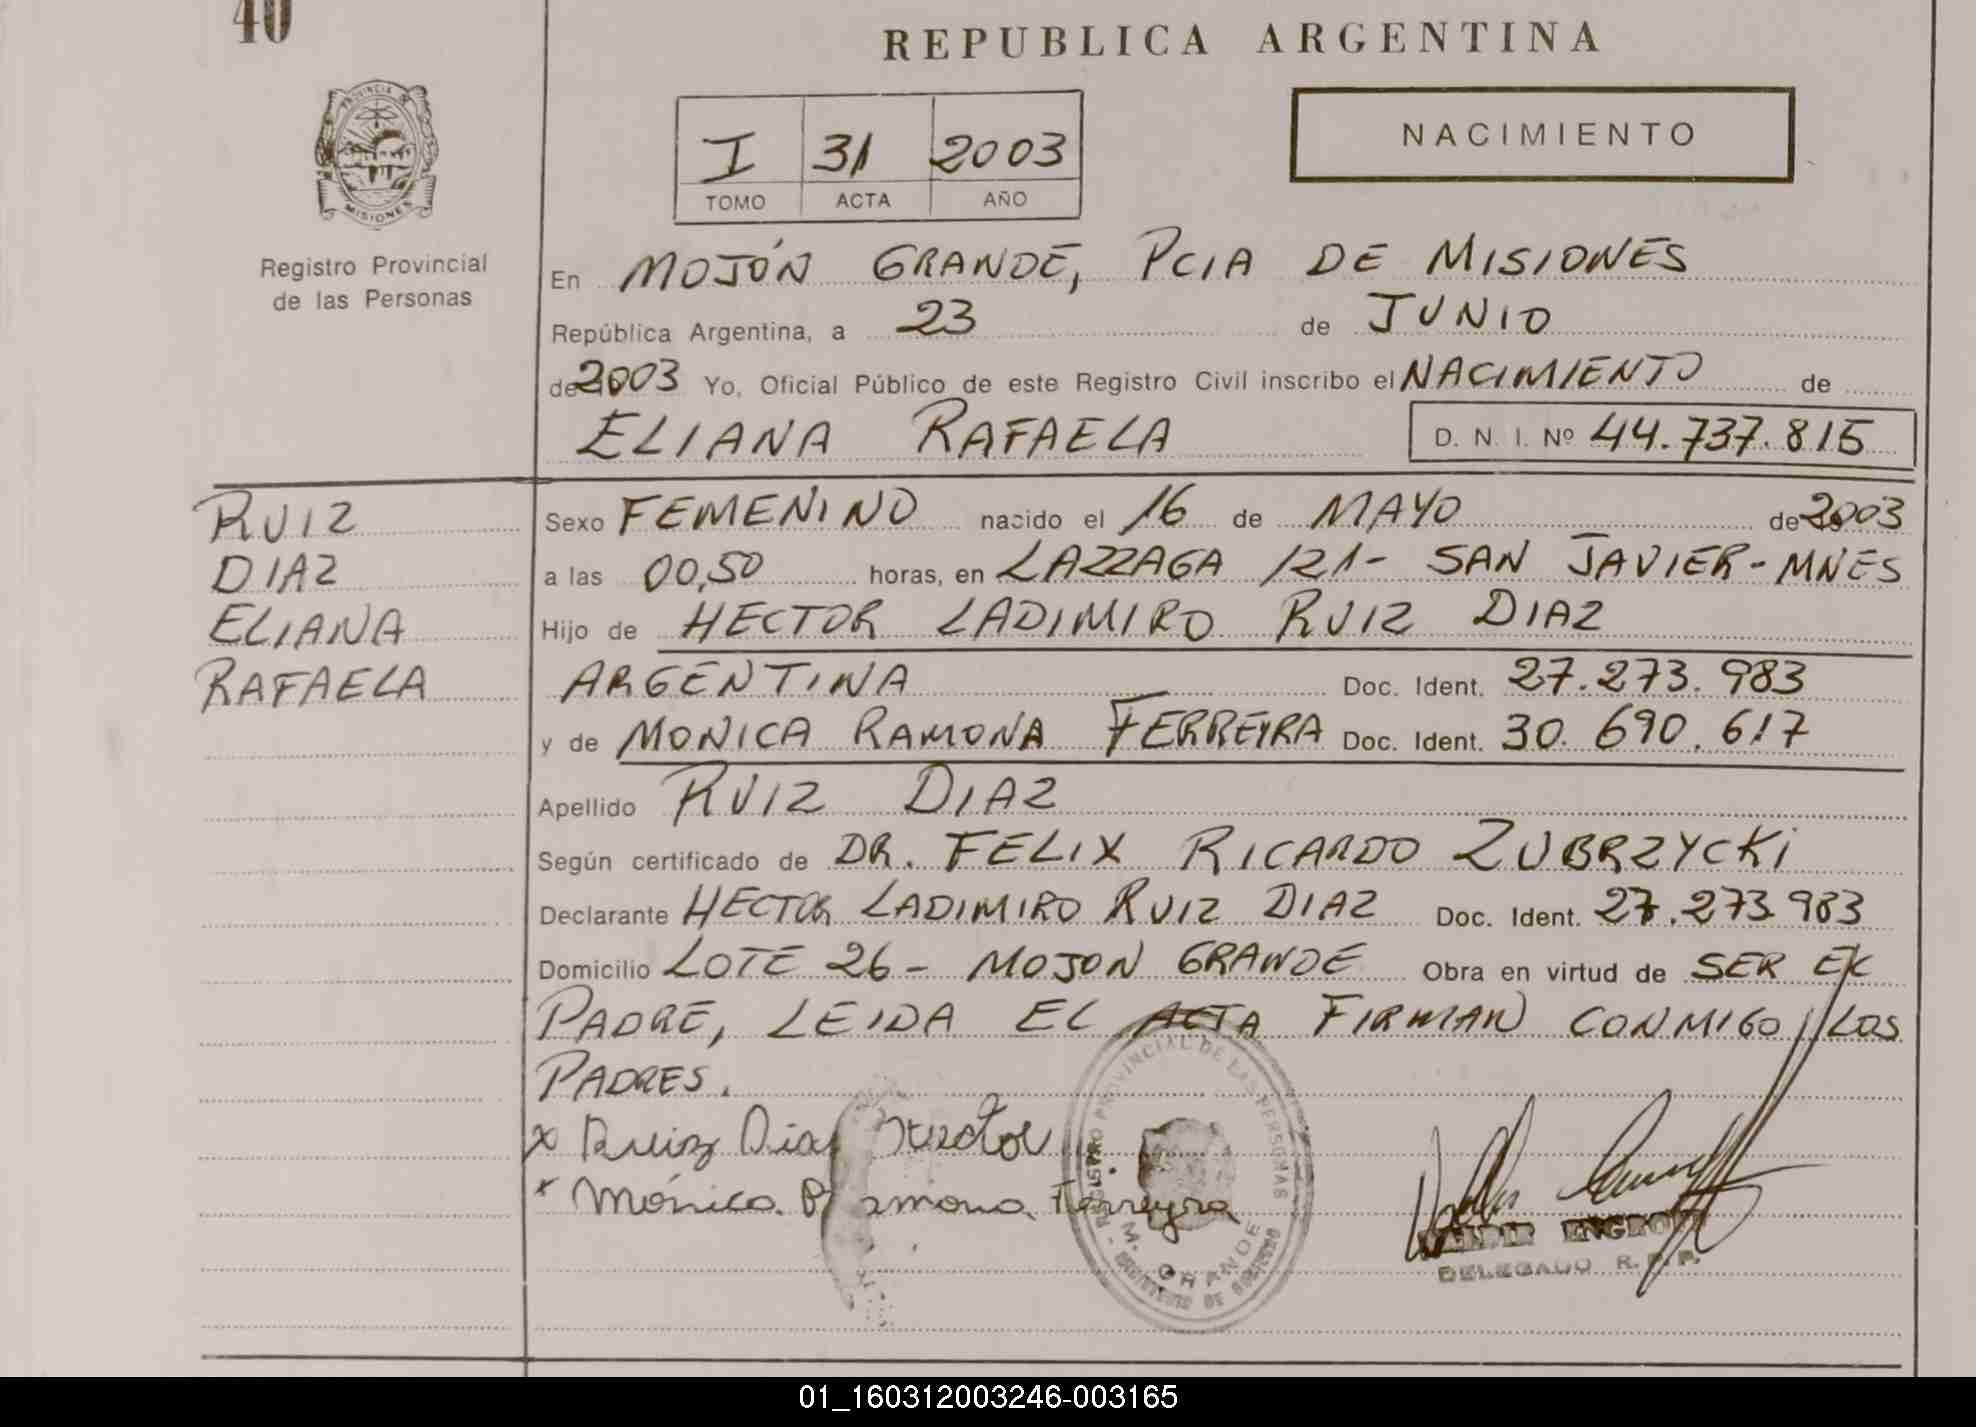 40
REPUBLICA ARGENTINA
PROVINCIA DE
MISIONES
NACIMIENTO
I 31 2003
TOMO ACTA AÑO
Registro Provincial
de las Personas
En MOJÓN GRANDE, PCIA DE MISIONES
República Argentina, a 23 de JUNIO
de 2003 Yo, Oficial Público de este Registro Civil inscribo el NACIMIENTO de
ELIANA RAFAELA D. N. I. Nº 44.737.815
RUIZ
DIAZ
ELIANA
RAFAELA
Sexo FEMENINO nacido el 16 de MAYO de 2003
a las 00,50 horas, en LAZZAGA 121- SAN JAVIER-MNES
Hijo de HECTOR LADIMIRO RUIZ DIAZ
ARGENTINA Doc. Ident. 27.273.983
y de MONICA RAMONA FERREYRA Doc. Ident. 30.690.617
Apellido RUIZ DIAZ
Según certificado de DR. FELIX RICARDO ZUBRZYCKI
Declarante HECTOR LADIMIRO RUIZ DIAZ Doc. Ident. 27.273.983
Domicilio LOTE 26 - MOJON GRANDE Obra en virtud de SER EL
PADRE, LEIDA EL ACTA FIRMAN CONMIGO LOS
PADRES.
x Ruiz Diaz Hector
x Mónica Ramona Ferreyra
REGISTRO PROVINCIAL DE LAS PERSONAS
M. GRANDE
DELEGADO R.P.P.
01_160312003246-003165